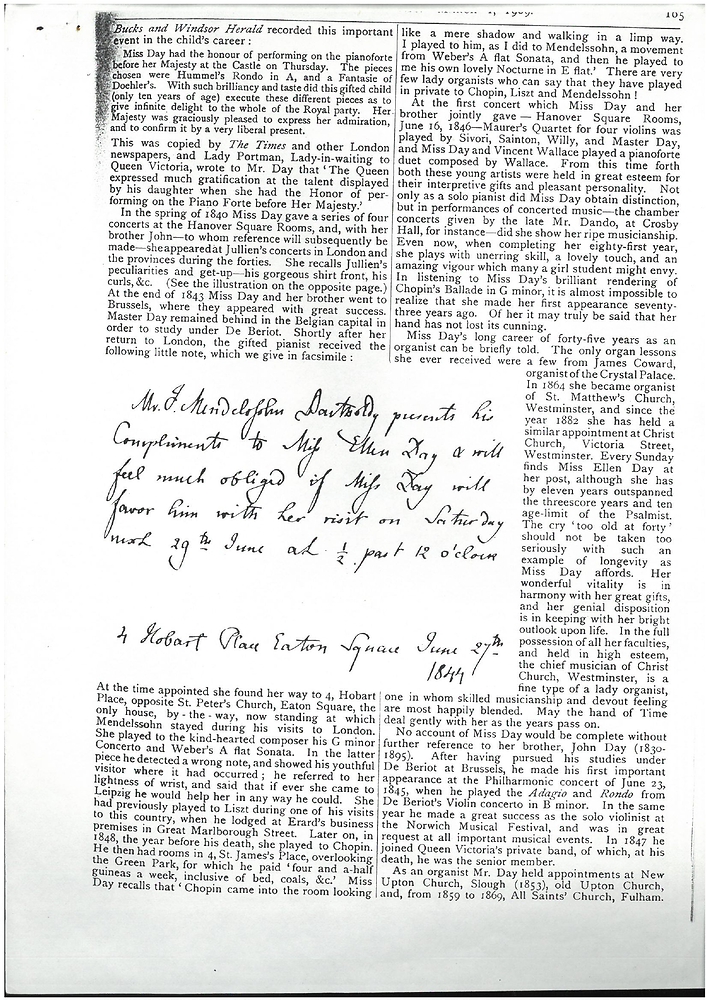 105
Bucks and Windsor Herald recorded this important
event in the child's career :
Miss Day had the honour of performing on the pianoforte
before her Majesty at the Castle on Thursday. The pieces
chosen were Hummel's Rondo in A, and a Fantasie of
Doehler's. With such brilliancy and taste did this gifted child
(only ten years of age) execute these different pieces as to
give infinite delight to the whole of the Royal party. Her
Majesty was graciously pleased to express her admiration,
and to confirm it by a very liberal present.
This was copied by The Times and other London
newspapers, and Lady Portman, Lady-in-waiting to
Queen Victoria, wrote to Mr. Day that 'The Queen
expressed much gratification at the talent displayed
by his daughter when she had the Honor of per-
forming on the Piano Forte before Her Majesty.'
In the spring of 1840 Miss Day gave a series of four
concerts at the Hanover Square Rooms, and, with her
brother John—to whom reference will subsequently be
made—she appeared at Jullien's concerts in London and
the provinces during the forties. She recalls Jullien's
peculiarities and get-up—his gorgeous shirt front, his
curls, &c. (See the illustration on the opposite page.)
At the end of 1843 Miss Day and her brother went to
Brussels, where they appeared with great success.
Master Day remained behind in the Belgian capital in
order to study under De Beriot. Shortly after her
return to London, the gifted pianist received the
following little note, which we give in facsimile :
Mr. F. Mendelssohn Bartholdy presents his
Compliments to Miss Ellen Day & will
feel much obliged if Miss Day will
favor him with her visit on Saturday
next 29th June at ½ past 12 o'clock
4 Hobart Place Eaton Square June 27th
1844
At the time appointed she found her way to 4, Hobart
Place, opposite St. Peter's Church, Eaton Square, the
only house, by-the-way, now standing at which
Mendelssohn stayed during his visits to London.
She played to the kind-hearted composer his G minor
Concerto and Weber's A flat Sonata. In the latter
piece he detected a wrong note, and showed his youthful
visitor where it had occurred ; he referred to her
lightness of wrist, and said that if ever she came to
Leipzig he would help her in any way he could. She
had previously played to Liszt during one of his visits
to this country, when he lodged at Erard's business
premises in Great Marlborough Street. Later on, in
1848, the year before his death, she played to Chopin.
He then had rooms in 4, St. James's Place, overlooking
the Green Park, for which he paid 'four and a-half
guineas a week, inclusive of bed, coals, &c.' Miss
Day recalls that 'Chopin came into the room looking
like a mere shadow and walking in a limp way.
I played to him, as I did to Mendelssohn, a movement
from Weber's A flat Sonata, and then he played to
me his own lovely Nocturne in E flat.' There are very
few lady organists who can say that they have played
in private to Chopin, Liszt and Mendelssohn !
At the first concert which Miss Day and her
brother jointly gave — Hanover Square Rooms,
June 16, 1846—Maurer's Quartet for four violins was
played by Sivori, Sainton, Willy, and Master Day,
and Miss Day and Vincent Wallace played a pianoforte
duet composed by Wallace. From this time forth
both these young artists were held in great esteem for
their interpretive gifts and pleasant personality. Not
only as a solo pianist did Miss Day obtain distinction,
but in performances of concerted music—the chamber
concerts given by the late Mr. Dando, at Crosby
Hall, for instance—did she show her ripe musicianship.
Even now, when completing her eighty-first year,
she plays with unerring skill, a lovely touch, and an
amazing vigour which many a girl student might envy.
In listening to Miss Day's brilliant rendering of
Chopin's Ballade in G minor, it is almost impossible to
realize that she made her first appearance seventy-
three years ago. Of her it may truly be said that her
hand has not lost its cunning.
Miss Day's long career of forty-five years as an
organist can be briefly told. The only organ lessons
she ever received were a few from James Coward,
organist of the Crystal Palace.
In 1864 she became organist
of St. Matthew's Church,
Westminster, and since the
year 1882 she has held a
similar appointment at Christ
Church, Victoria Street,
Westminster. Every Sunday
finds Miss Ellen Day at
her post, although she has
by eleven years outspanned
the threescore years and ten
age-limit of the Psalmist.
The cry 'too old at forty'
should not be taken too
seriously with such an
example of longevity as
Miss Day affords. Her
wonderful vitality is in
harmony with her great gifts,
and her genial disposition
is in keeping with her bright
outlook upon life. In the full
possession of all her faculties,
and held in high esteem,
the chief musician of Christ
Church, Westminster, is a
fine type of a lady organist,
one in whom skilled musicianship and devout feeling
are most happily blended. May the hand of Time
deal gently with her as the years pass on.
No account of Miss Day would be complete without
further reference to her brother, John Day (1830-
1895). After having pursued his studies under
De Beriot at Brussels, he made his first important
appearance at the Philharmonic concert of June 23,
1845, when he played the Adagio and Rondo from
De Beriot's Violin concerto in B minor. In the same
year he made a great success as the solo violinist at
the Norwich Musical Festival, and was in great
request at all important musical events. In 1847 he
joined Queen Victoria's private band, of which, at his
death, he was the senior member.
As an organist Mr. Day held appointments at New
Upton Church, Slough (1853), old Upton Church,
and, from 1859 to 1869, All Saints' Church, Fulham.